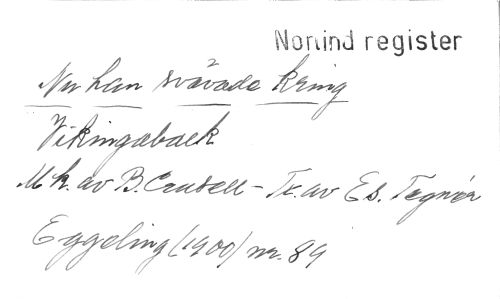 Norlind register
Nu han svävade kring
Vikingabalk
Mk. av B. Crusell - Tx. av Es. Tegnér
Eggeling (1900) nr. 89